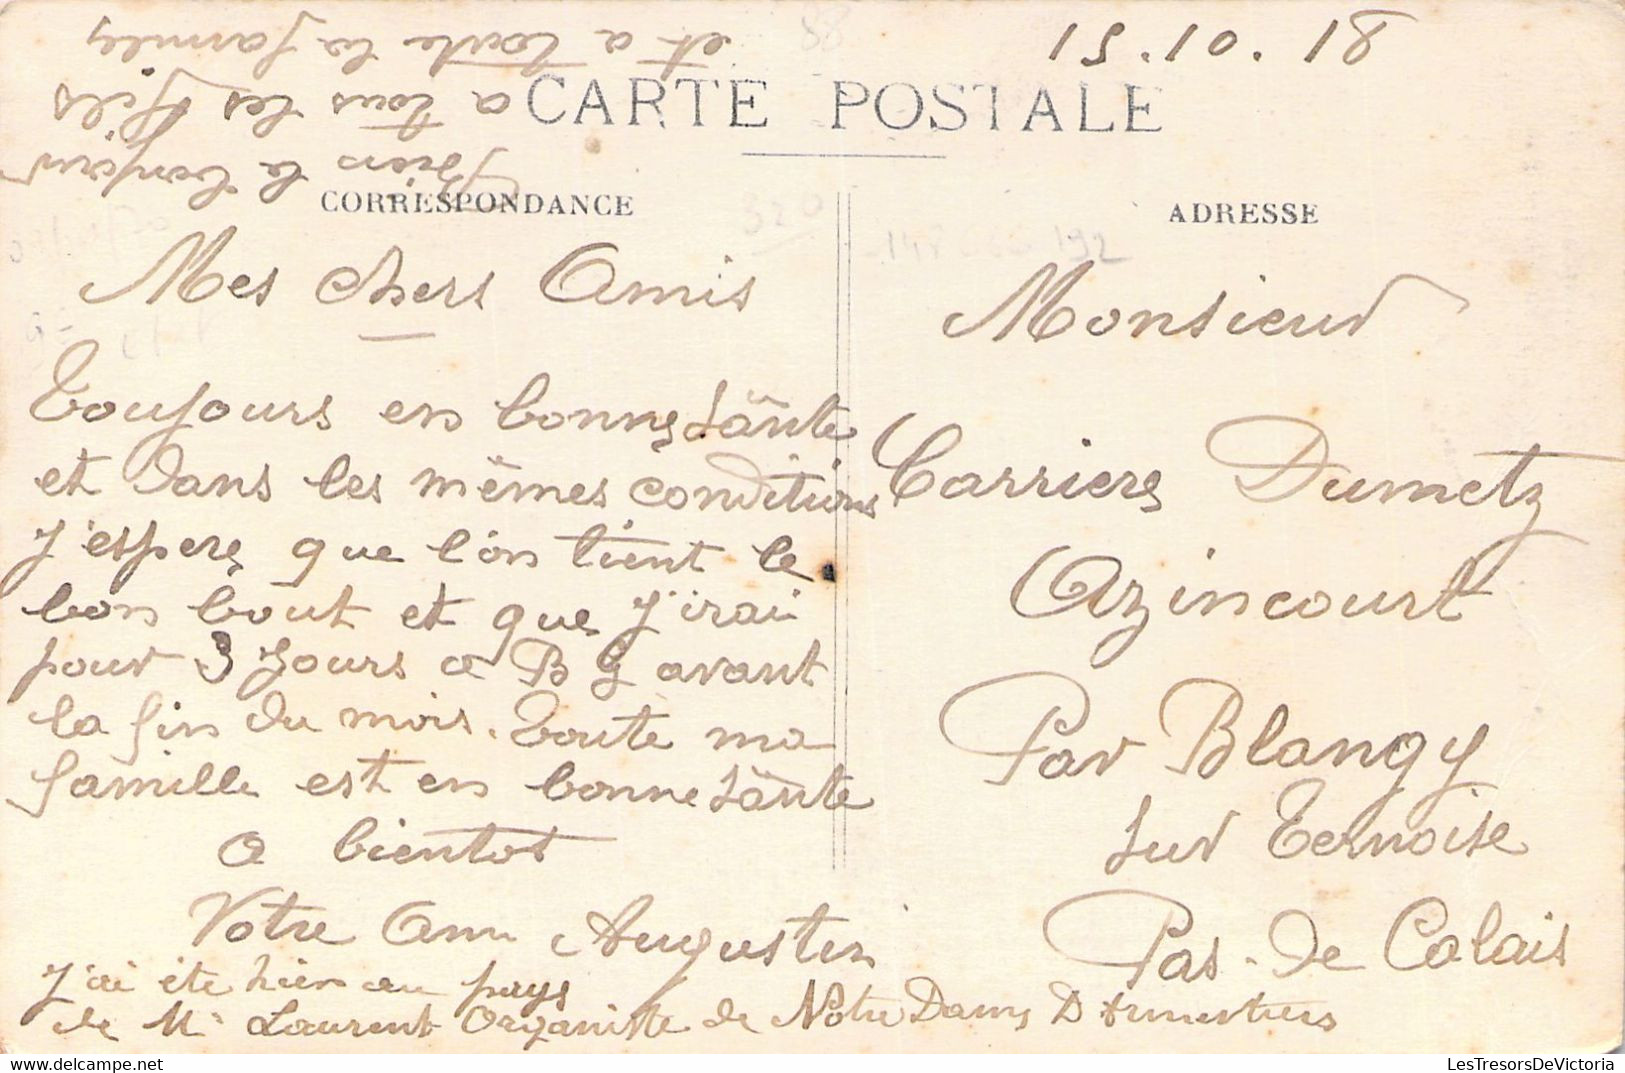 15.10.18
CARTE POSTALE
CORRESPONDANCE
ADRESSE
Mes chers Amis
Toujours en bonne santé
et dans les mêmes conditions
j'espere que l'on tient le
bon bout et que j'irai
pour 3 jours a B y avant
la fin du mois. Toute ma
famille est en bonne santé
a bientot
Votre Ami Augustin
J'ai été hier au pays
de Mr Laurent Organiste de Notre Dame D Armentiers
Bien le bonjour
a tous les fils
et a toute la famille
Monsieur
Carriere Dumetz
Azincourt
Par Blangy
sur Ternoise
Pas-de Calais
LesTresorsDeVictoria